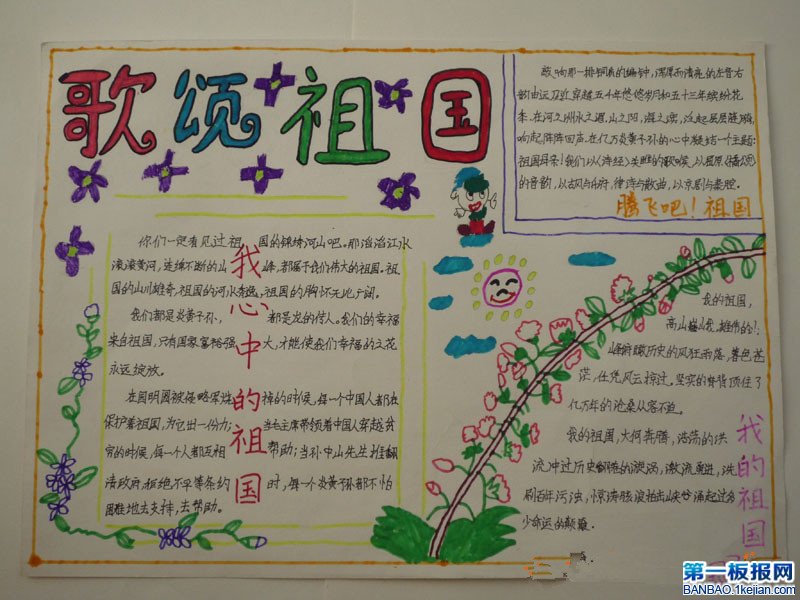 歌颂祖国
敲响那一排铜质的编钟，浑厚而清亮的左音右
部由远及近穿越五十年悠悠岁月和五十三年缤纷花
季，在河之洲水之湄，山之阳，海之滨，
响起阵阵回声。在亿万炎黄子孙的心中凝结一个主题：
祖国母亲！我们以《诗经》关雎的歌喉，以屈原《橘颂》
的音韵，以古风与乐府，律诗与散曲，以京剧与秦腔。
腾飞吧！祖国
你们一定看见过祖国的锦绣河山吧。那滔滔江水
滚滚黄河，连绵不断的山峰，都属于我们伟大的祖国。祖
国的山川雄奇，祖国的河水秀逸，祖国的胸怀无比广阔。
我们都是炎黄子孙，都是龙的传人。我们的幸福
来自祖国，只有国家富裕强大，才能使我们幸福的之花
永远绽放。
在圆明园被侵略者烧掉的时候，每一个中国人都在
保护着祖国，为它出一份力；当毛主席带领着中国人穿越贫
穷的时候，每一个人都互相帮助；当孙中山先生推翻
清政府，拒绝不平等条约时，每一个炎黄子孙都不怕
困难地去支持，去帮助。
我心中的祖国
我的祖国，
高山巍峨，雄伟的山
峰俯瞰历史的风狂雨落，暮色苍
茫，任凭风云掠过。坚实的脊背顶住了
亿万年的沧桑从容不迫。
我的祖国，大河奔腾，浩荡的洪
流冲过历史翻卷的漩涡，激流勇进，洗
刷百年污浊，惊涛骇浪拍击峡谷涌起过多
少命运的颠簸。
我的祖国
第一板报网
BANBAO.1kejian.com